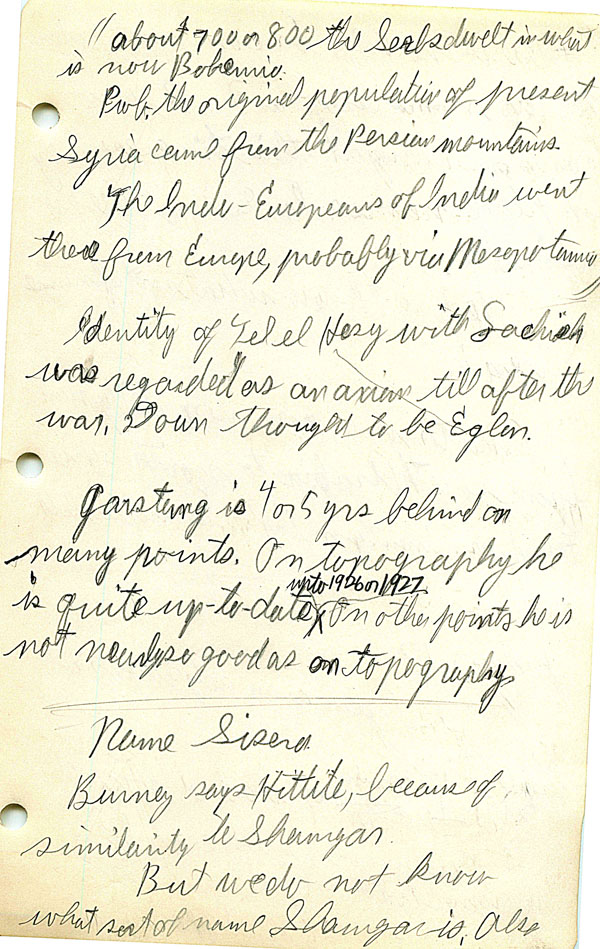 "about 700 or 800 the Serbs dwelt in what
is now Bohemia.
Prob. the original population of present
Syria came from the Persian mountains.
The Indo-Europeans of India went
there from Europe, probably via Mesopotamia"
Identity of Tel el Hesy with Lachish
was regarded as an axiom till after the
war. Now thought to be Eglon.
Garstang is 4 or 5 yrs behind on
many points. On topography he
up to 1926 or 1927
is quite up-to-date. On other points he is
not nearly so good as on topography
Name Sisera
Burney says Hittite, because of
similarity to Shamgar.
But we do not know
what sort of name Shamgar is. Also